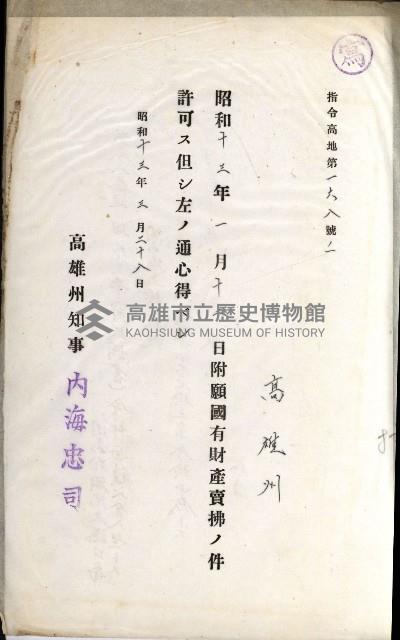 寫
指令高地第一六八號ノ一
高雄州
昭和十三年一月十日附願國有財產賣拂ノ件
許可ス但シ左ノ通心得ベシ
昭和十三年三月二十八日
高雄州知事 內海忠司
高雄市立歷史博物館
KAOHSIUNG MUSEUM OF HISTORY